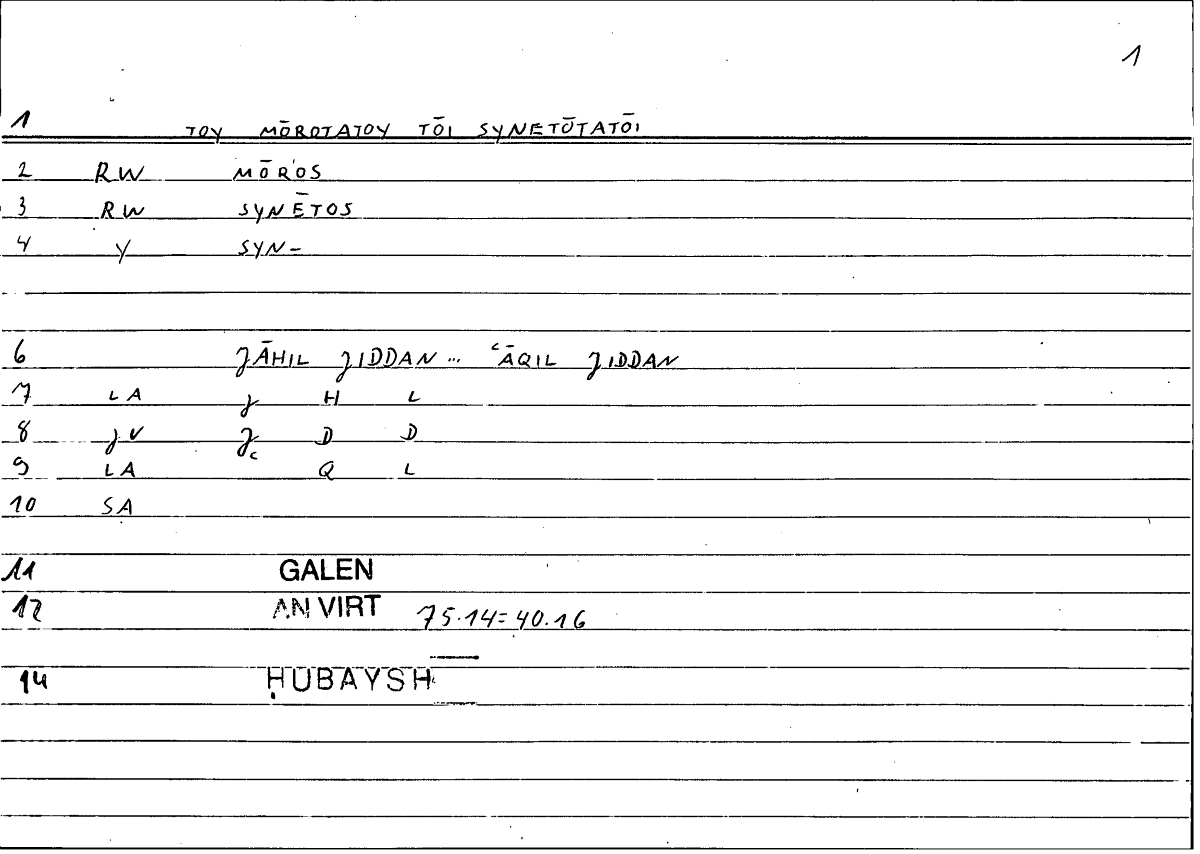 1
1 TOY MŌROTATOY TŌI SYNETŌTATŌI
2 RW MŌRÓS
3 RW SYNĒTOS
4 Y SYN-
6 JĀHIL JIDDAN ... ʿĀQIL JIDDAN
7 LA J H L
8 JV J D D
9 LA ʿ Q L
10 SA
11 GALEN
12 AN VIRT 75.14=40.16
14 ḤUBAYSH